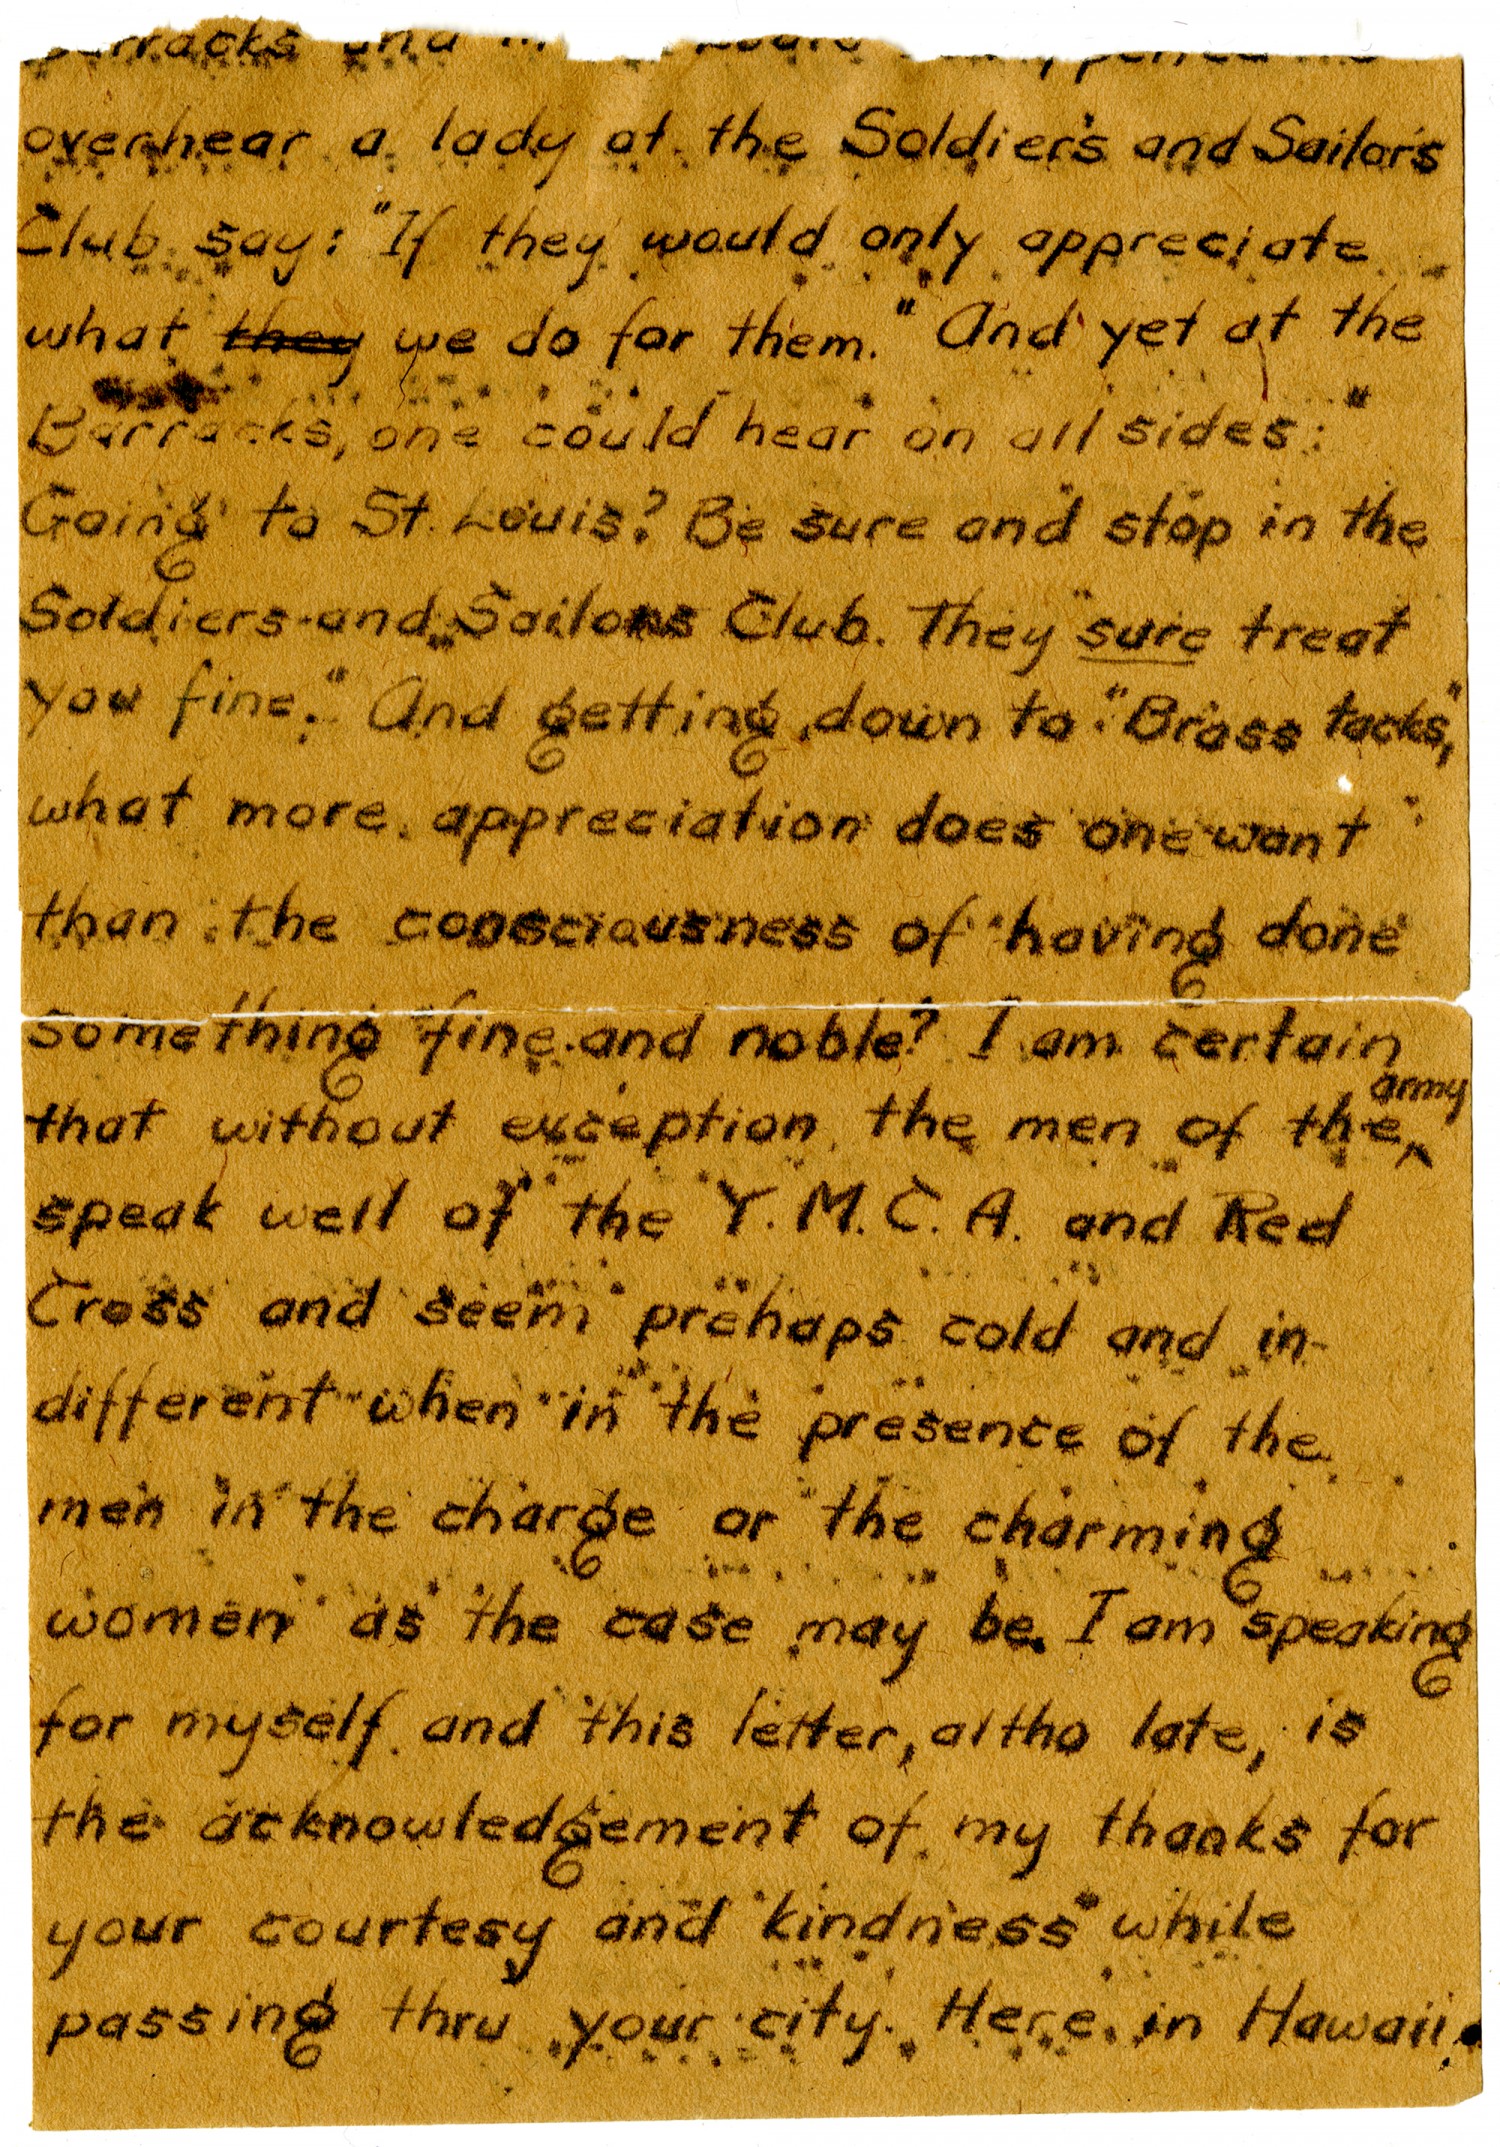 Barracks and in
overhear a lady at the Soldier's and Sailor's
Club say: "If they would only appreciate
what they we do for them." And yet at the
Barracks, one could hear on all sides: "
Going to St. Louis? Be sure and stop in the
Soldiers and Sailors Club. They sure treat
you fine." And getting down to "Brass tacks",
what more appreciation does one want
than the consciousness of having done
something fine and noble? I am certain
that without exception the men of the army
speak well of the Y.M.C.A. and Red
Cross and seem prehaps cold and in-
different when in the presence of the
men in the charge or the charming
women as the case may be. I am speaking
for myself and this letter, altho late, is
the acknowledgement of my thanks for
your courtesy and kindness while
passing thru your city. Here in Hawaii